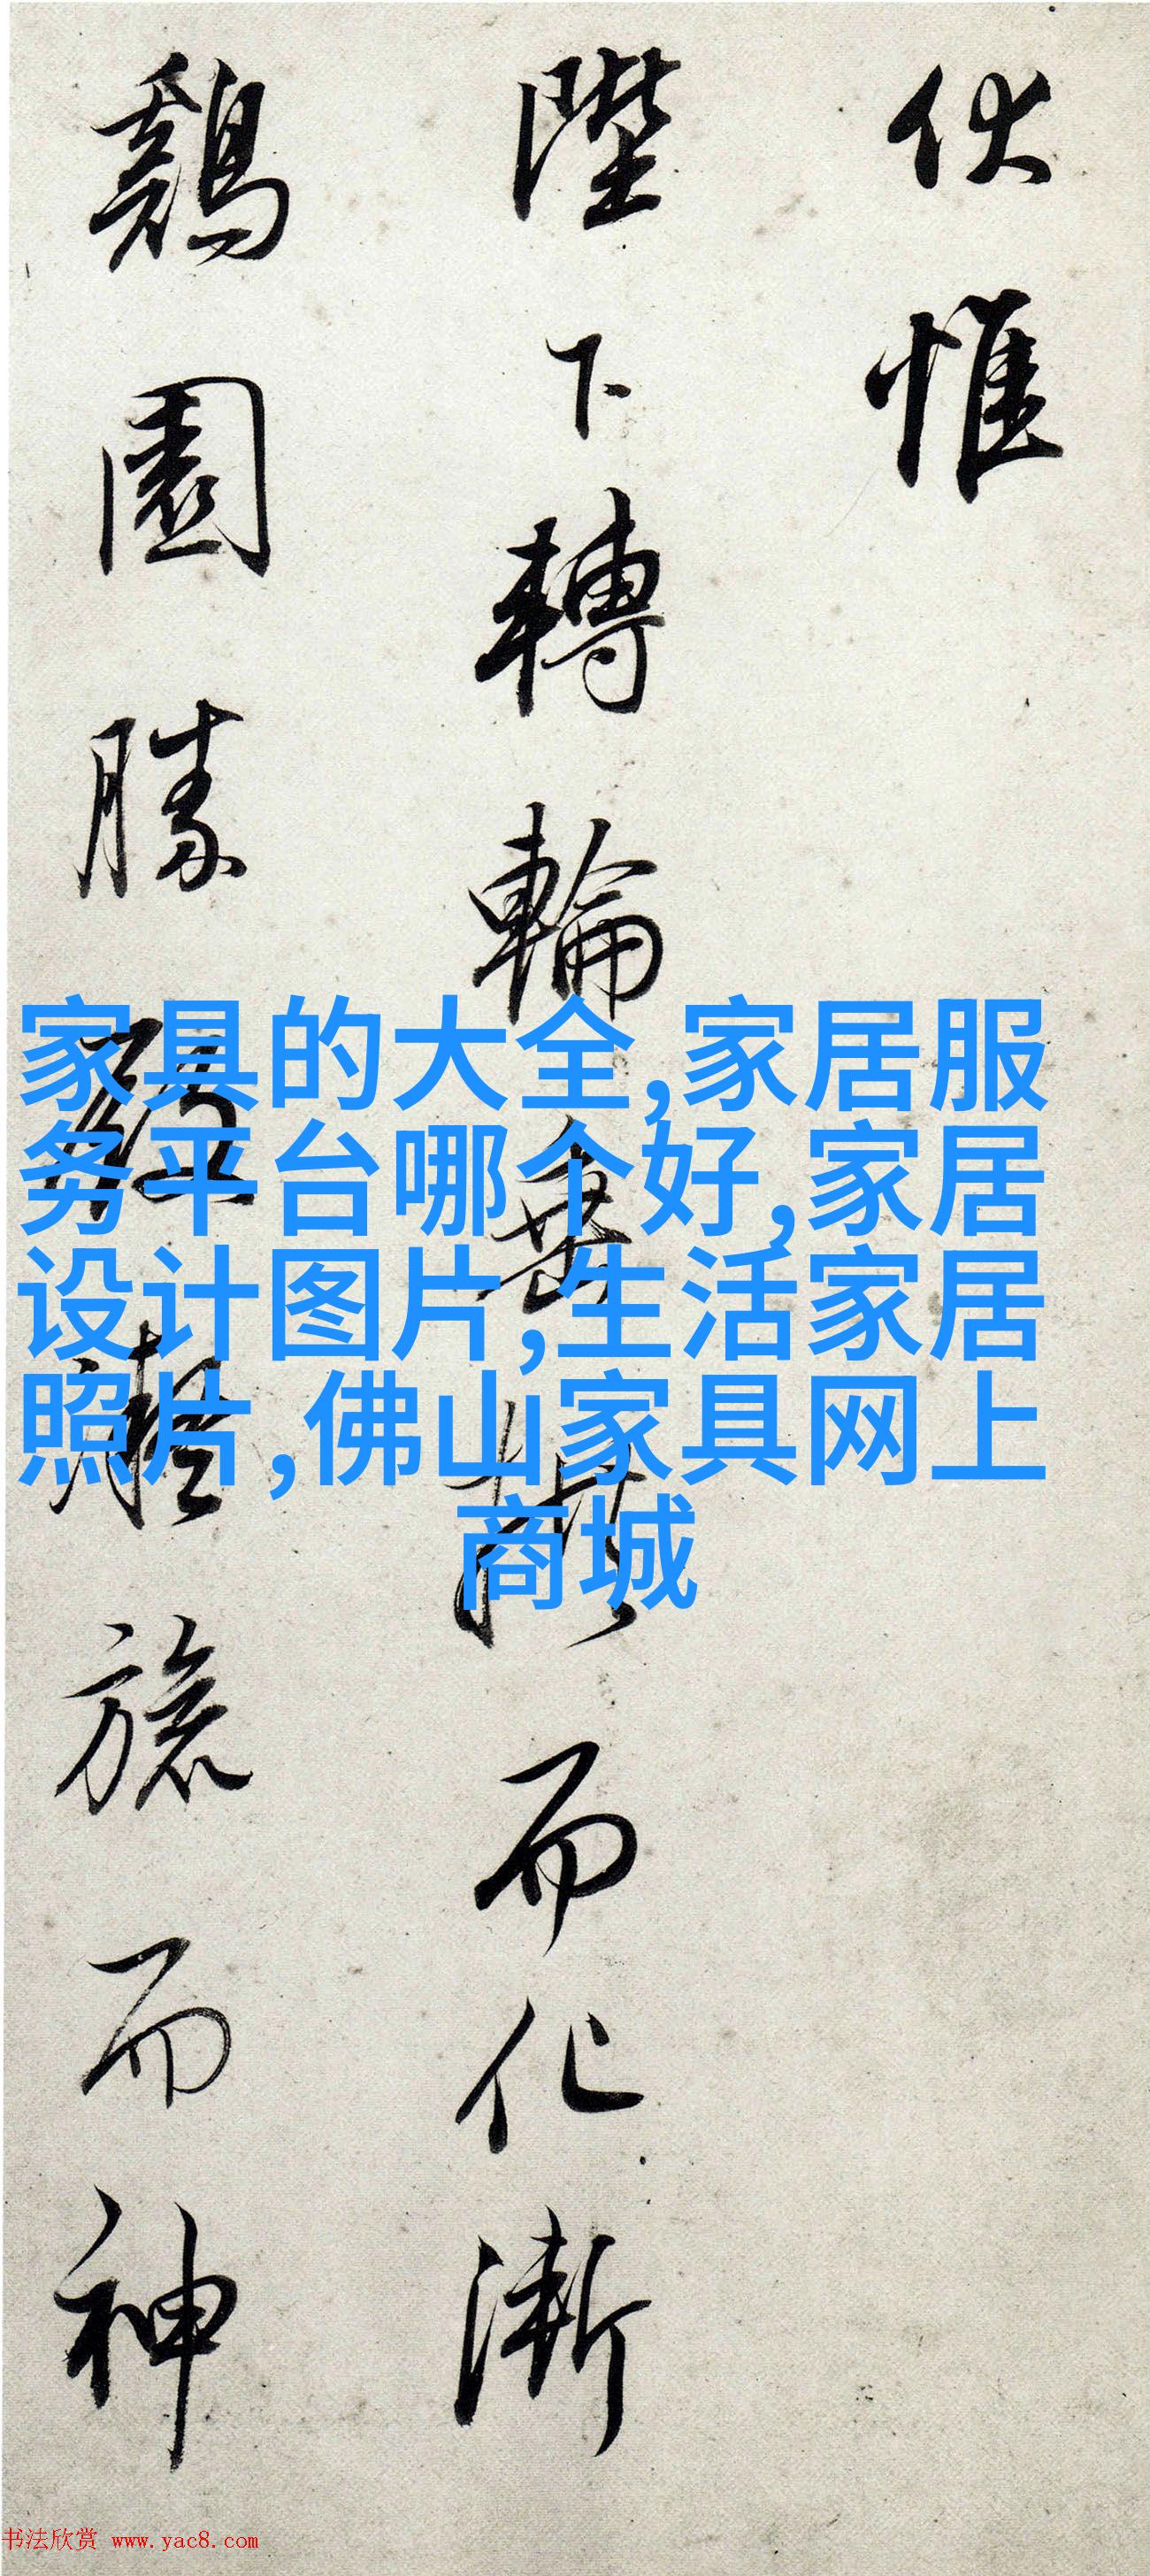 伏惟
陛下轉輪垂拱而化漸
鷄園勝躅禮旅而神
家具的大全,家居服
务平台哪个好,家居
设计图片,生活家居
照片,佛山家具网上
商城
书法欣赏 www.yac8.com